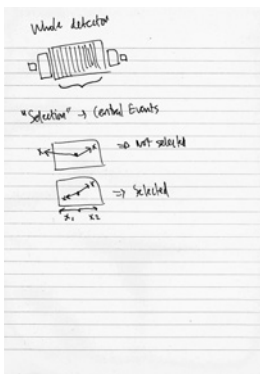 Whole detector
"Selection" → Central Events
x x ⇒ Not selected
x x ⇒ Selected
x₁ x₂